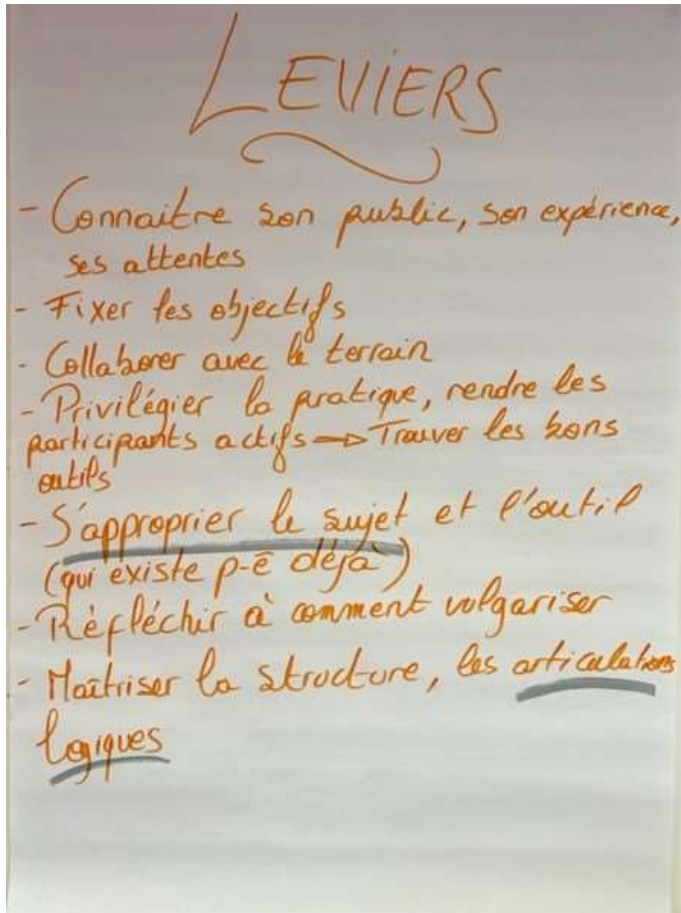 LEVIERS
- Connaitre son public, son expérience,
ses attentes
- Fixer les objectifs
- Collaborer avec le terrain
- Privilégier la pratique, rendre les
participants actifs => Trouver les bons
outils
- S'approprier le sujet et l'outil
(qui existe p-ê déjà)
- Réfléchir à comment vulgariser
- Maîtriser la structure, les articulations
logiques